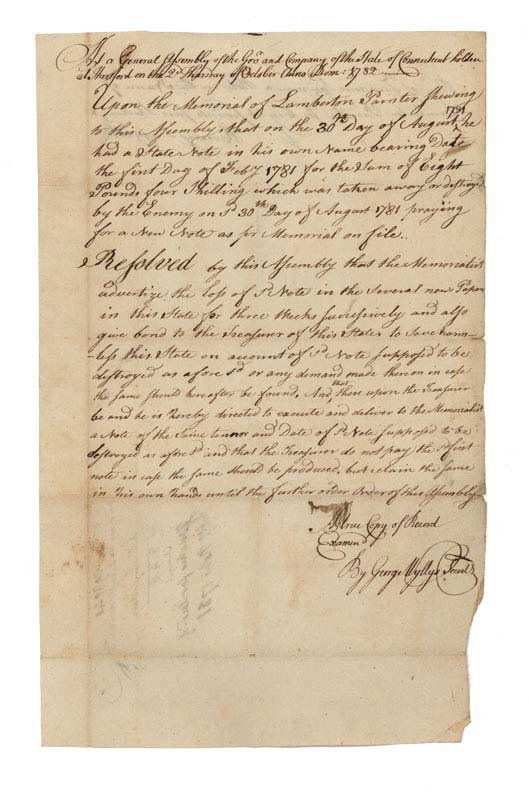 At a General Assembly of the Govr. and Company of the State of Connecticut holden
at Hartford on the 2d. Thursday of October Anno Dom: 1782
Upon the Memorial of Lamberton Painter shewing
to this Assembly, that on the 30th Day of August 1781 he
had a State Note in his own Name bearing Date
the first Day of Feby 1781 for the Sum of Eight
Pounds four Shilling which was taken away or destroyed
by the Enemy on sd. 30th Day of August 1781 praying
for a New Note as pr Memorial on file..
Resolved by this Assembly that the Memorialist
advertize the loss of sd. Note in the Several news Papers
in this State for three Weeks successively and also
give bond to the Treasurer of this State to Save harm-
-less this State on account of sd. Note supposed to be
destroyed as afore sd. or any demand made thereon in case
the same should hereafter be found, And that there upon the Treasurer
be and he is hereby directed to execute and deliver to the Memorialist
a Note of the Same tennor and Date of sd. Note supposed to be
destroyed as afore sd. and that the Treasurer do not pay the sd. first
note in case the same should be produced, but retain the same
in his own hand until the further order Order of this Assembly
A true Copy of Record
Examind
By George Wyllys Secrety